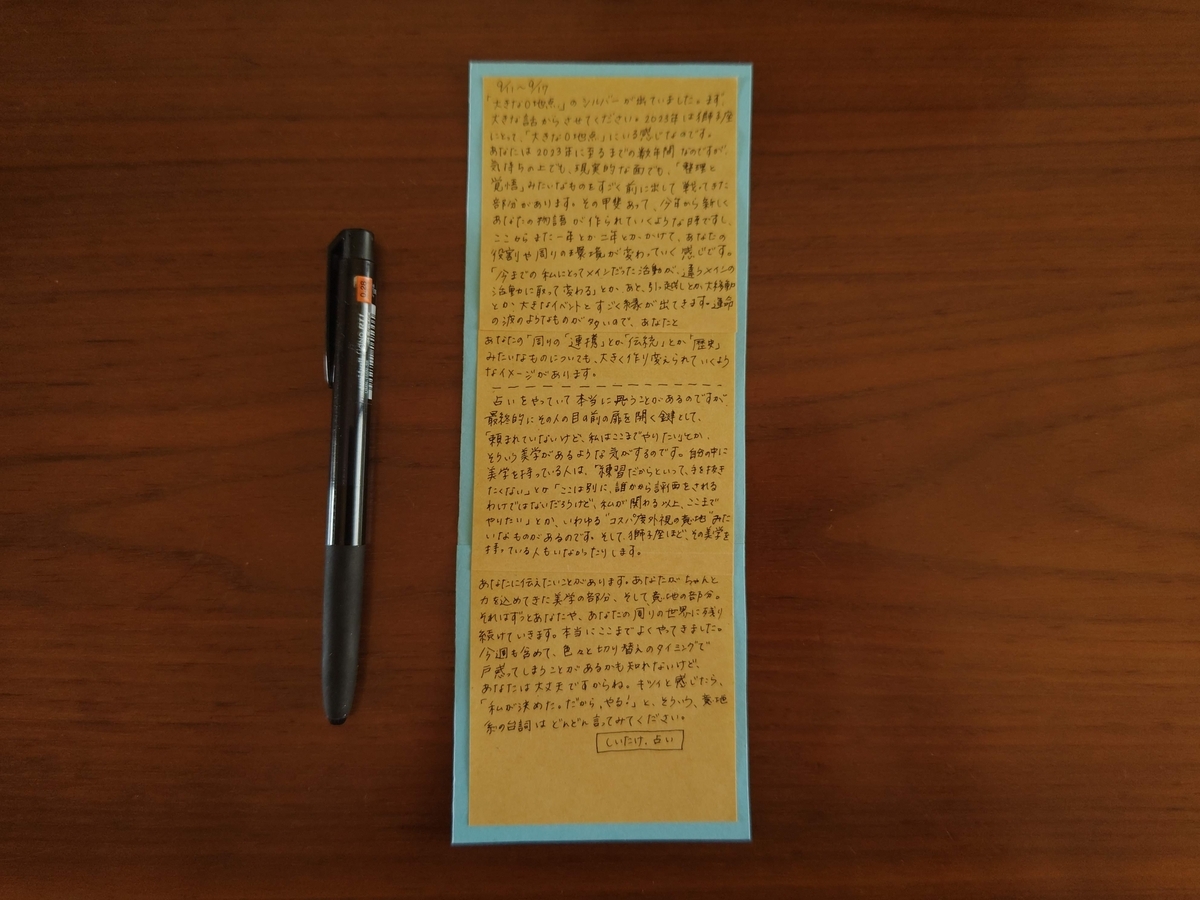 9/11〜9/17
「大きな0地点」のシルバーが出ていました。まず、
大きな話からさせてください。2023年は獅子座
にとって、「大きな0地点」にいる感じなのです。
あなたは2023年に至るまでの数年間なのですが、
気持ちの上でも、現実的な面でも、「整理と
覚悟」みたいなものをすごく前に出して戦ってきた
部分があります。その甲斐あって、今年から新しく
あなたの物語が作られていくような時ですし、
ここからまた一年とか二年とかかけて、あなたの
役割や周りの環境が変わっていく感じです。
「今までの私にとってメインだった活動が、違うメインの
活動に取って変わる」とか、あと、引っ越しとか大移動
とか大きなイベントとすごく縁が出てきます。運命
の波のようなものが多いので、あなたと
あなたの「周りの「連携」とか「伝統」とか「歴史」
みたいなものについても、大きく作り変えられていくよう
なイメージがあります。
占いをやっていて本当に思うことがあるのですが、
最終的にその人の目の前の扉を開く鍵として、
「頼まれていないけど、私はここまでやりたい」とか、
そういう美学があるような気がするのです。自分の中に
美学を持っている人は、「練習だからといって、手を抜き
たくない」とか「ここは別に、誰かから評価をされる
わけではないだろうけど、私が関わる以上、ここまで
やりたい」とか、いわゆる"コスパ度外視の意地"みた
いなものがあるのです。そして、獅子座ほど、その美学を
持っている人もいなかったりします。
あなたに伝えたいことがあります。あなたがちゃんと
力を込めてきた美学の部分、そして、意地の部分。
それはずっとあなたや、あなたの周りの世界に残り
続けていきます。本当にここまでよくやってきました。
今週も含めて、色々と切り替えのタイミングで
戸惑ってしまうことがあるかも知れないけど、
あなたは大丈夫ですからね。キツイと感じたら、
「私が決めた。だから、やる！」と、そういう、意地
系の台詞はどんどん言ってみてください。
しいたけ.占い
0.38